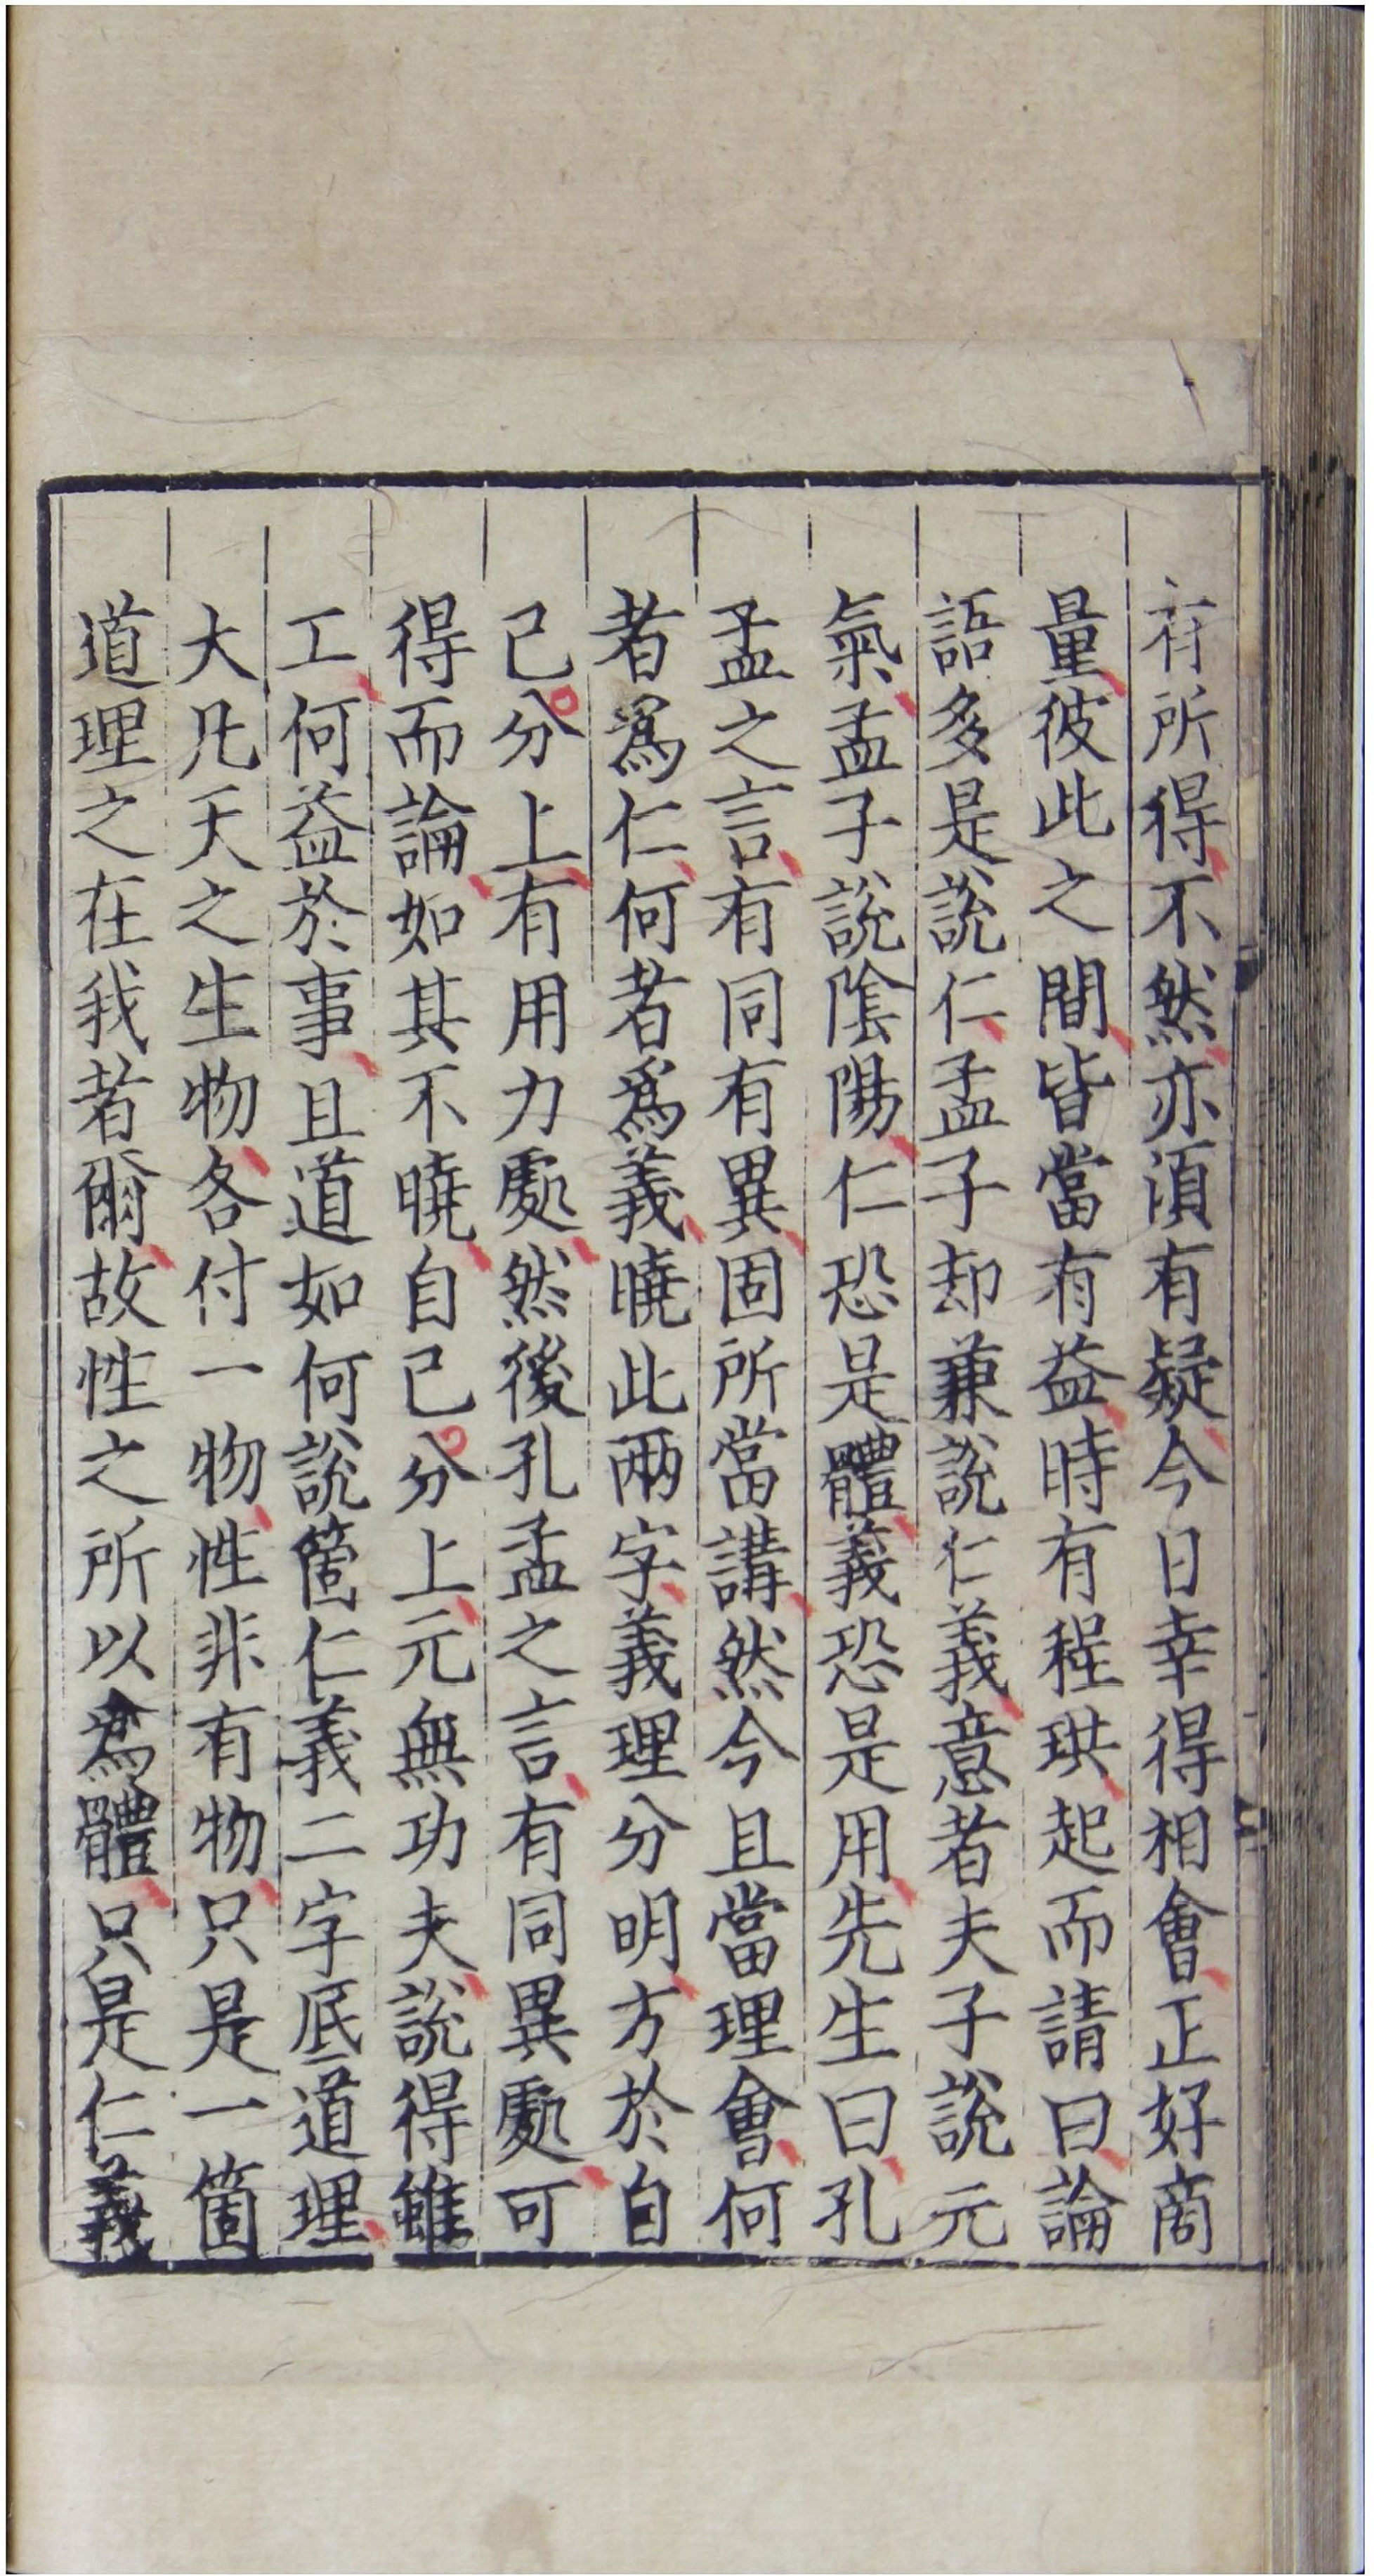 有所得不然亦須有疑今日幸得相會正好商
量彼此之間皆當有益時有程珙起而請曰論
語多是説仁孟子却兼説仁義意者夫子説元
氣孟子説隂陽仁恐是體義恐是用先生曰孔
孟之言有同有異固所當講然今且當理會何
者爲仁何者爲義曉此兩字義理分明方於自
己分上有用力處然後孔孟之言有同異處可
得而論如其不曉自己分上元無功夫説得雖
工何益於事且道如何説箇仁義二字底道理
大凡天之生物各付一物性非有物只是一箇
道理之在我者爾故性之所以爲體只是仁義